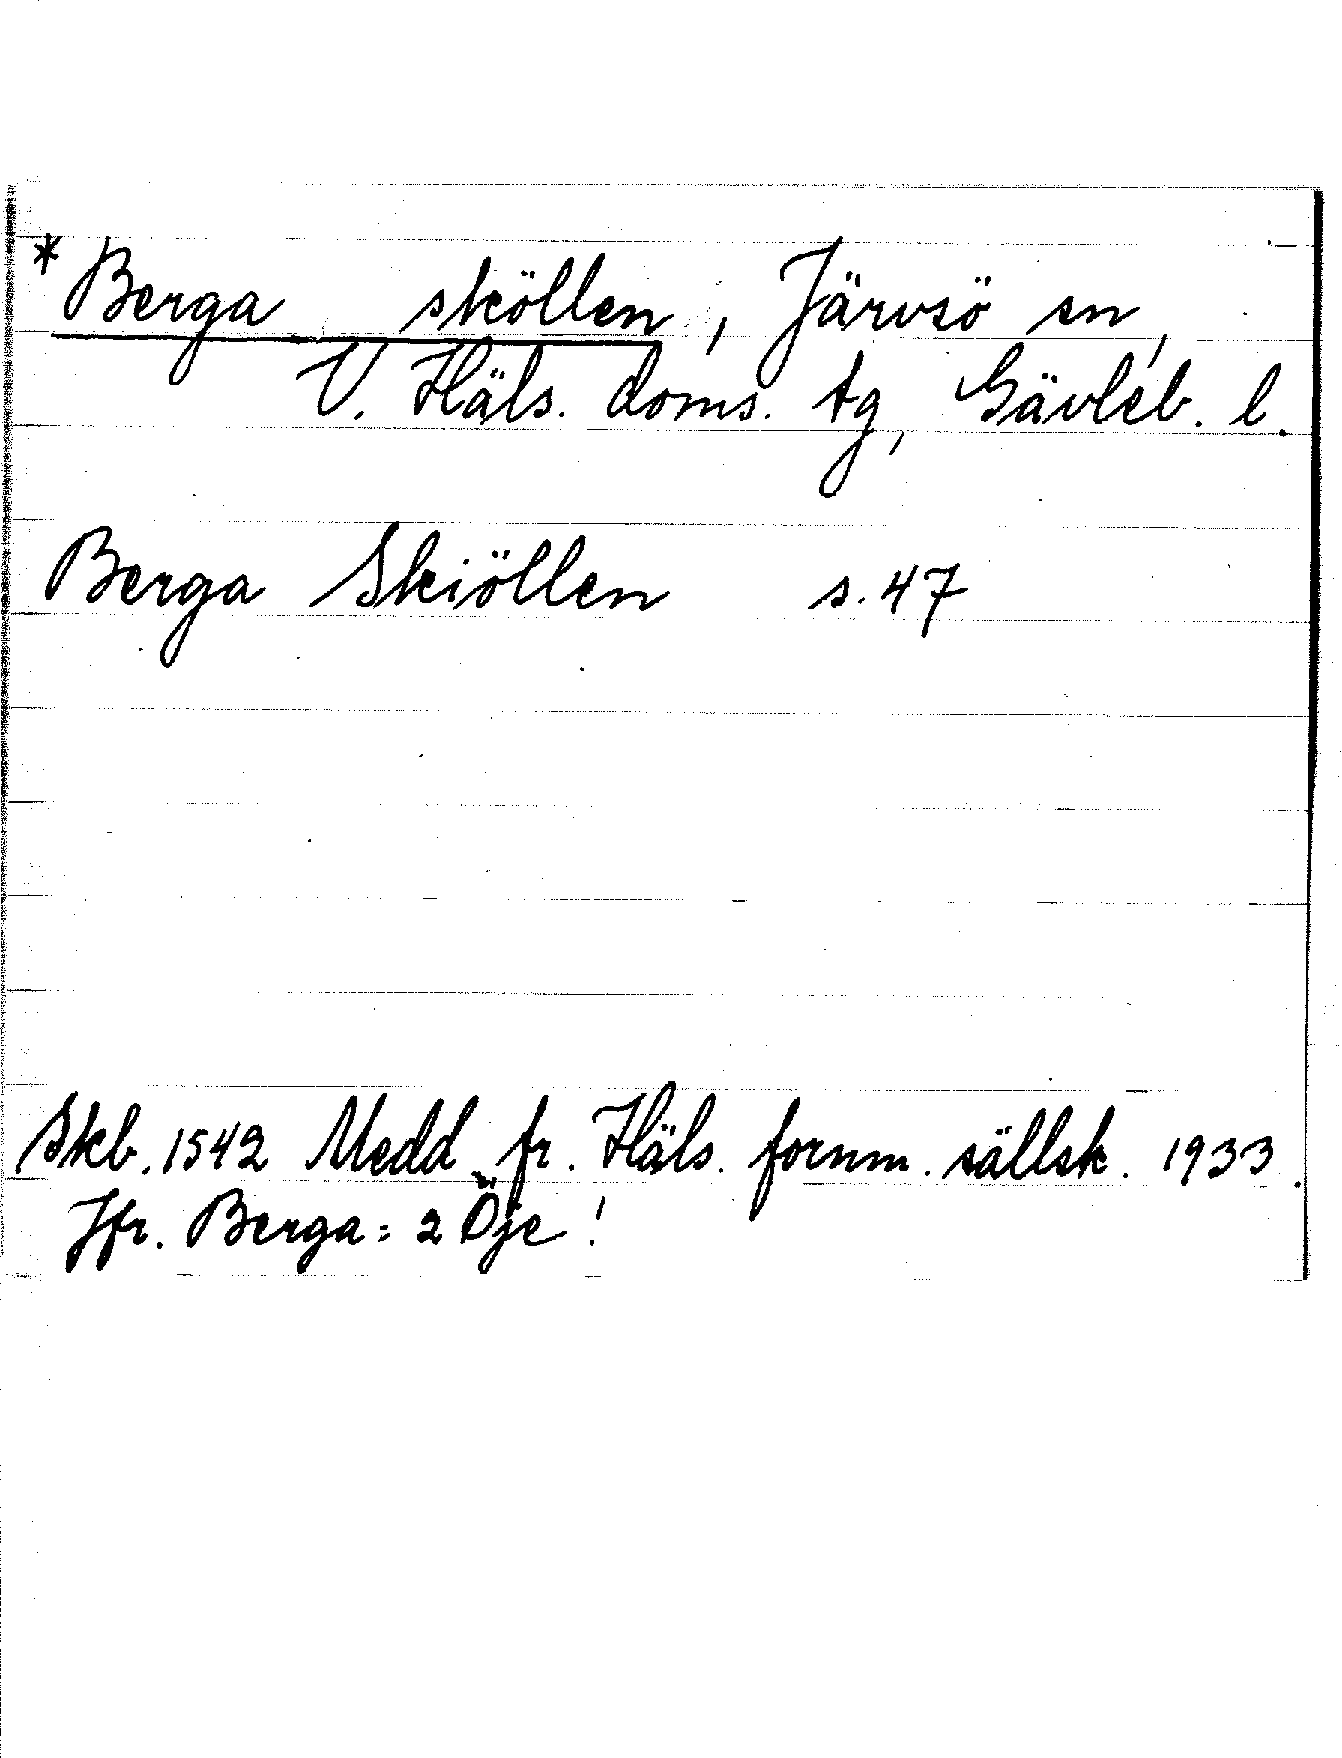 * Berga sköllen, Järvsö sn,
V. Häls. doms. tg, Gävleb. l.
Berga Skiöllen s. 47
Skb. 1542 Medd. fr. Häls. fornm. sällsk. 1933.
Jfr. Berga = 2 Öje!